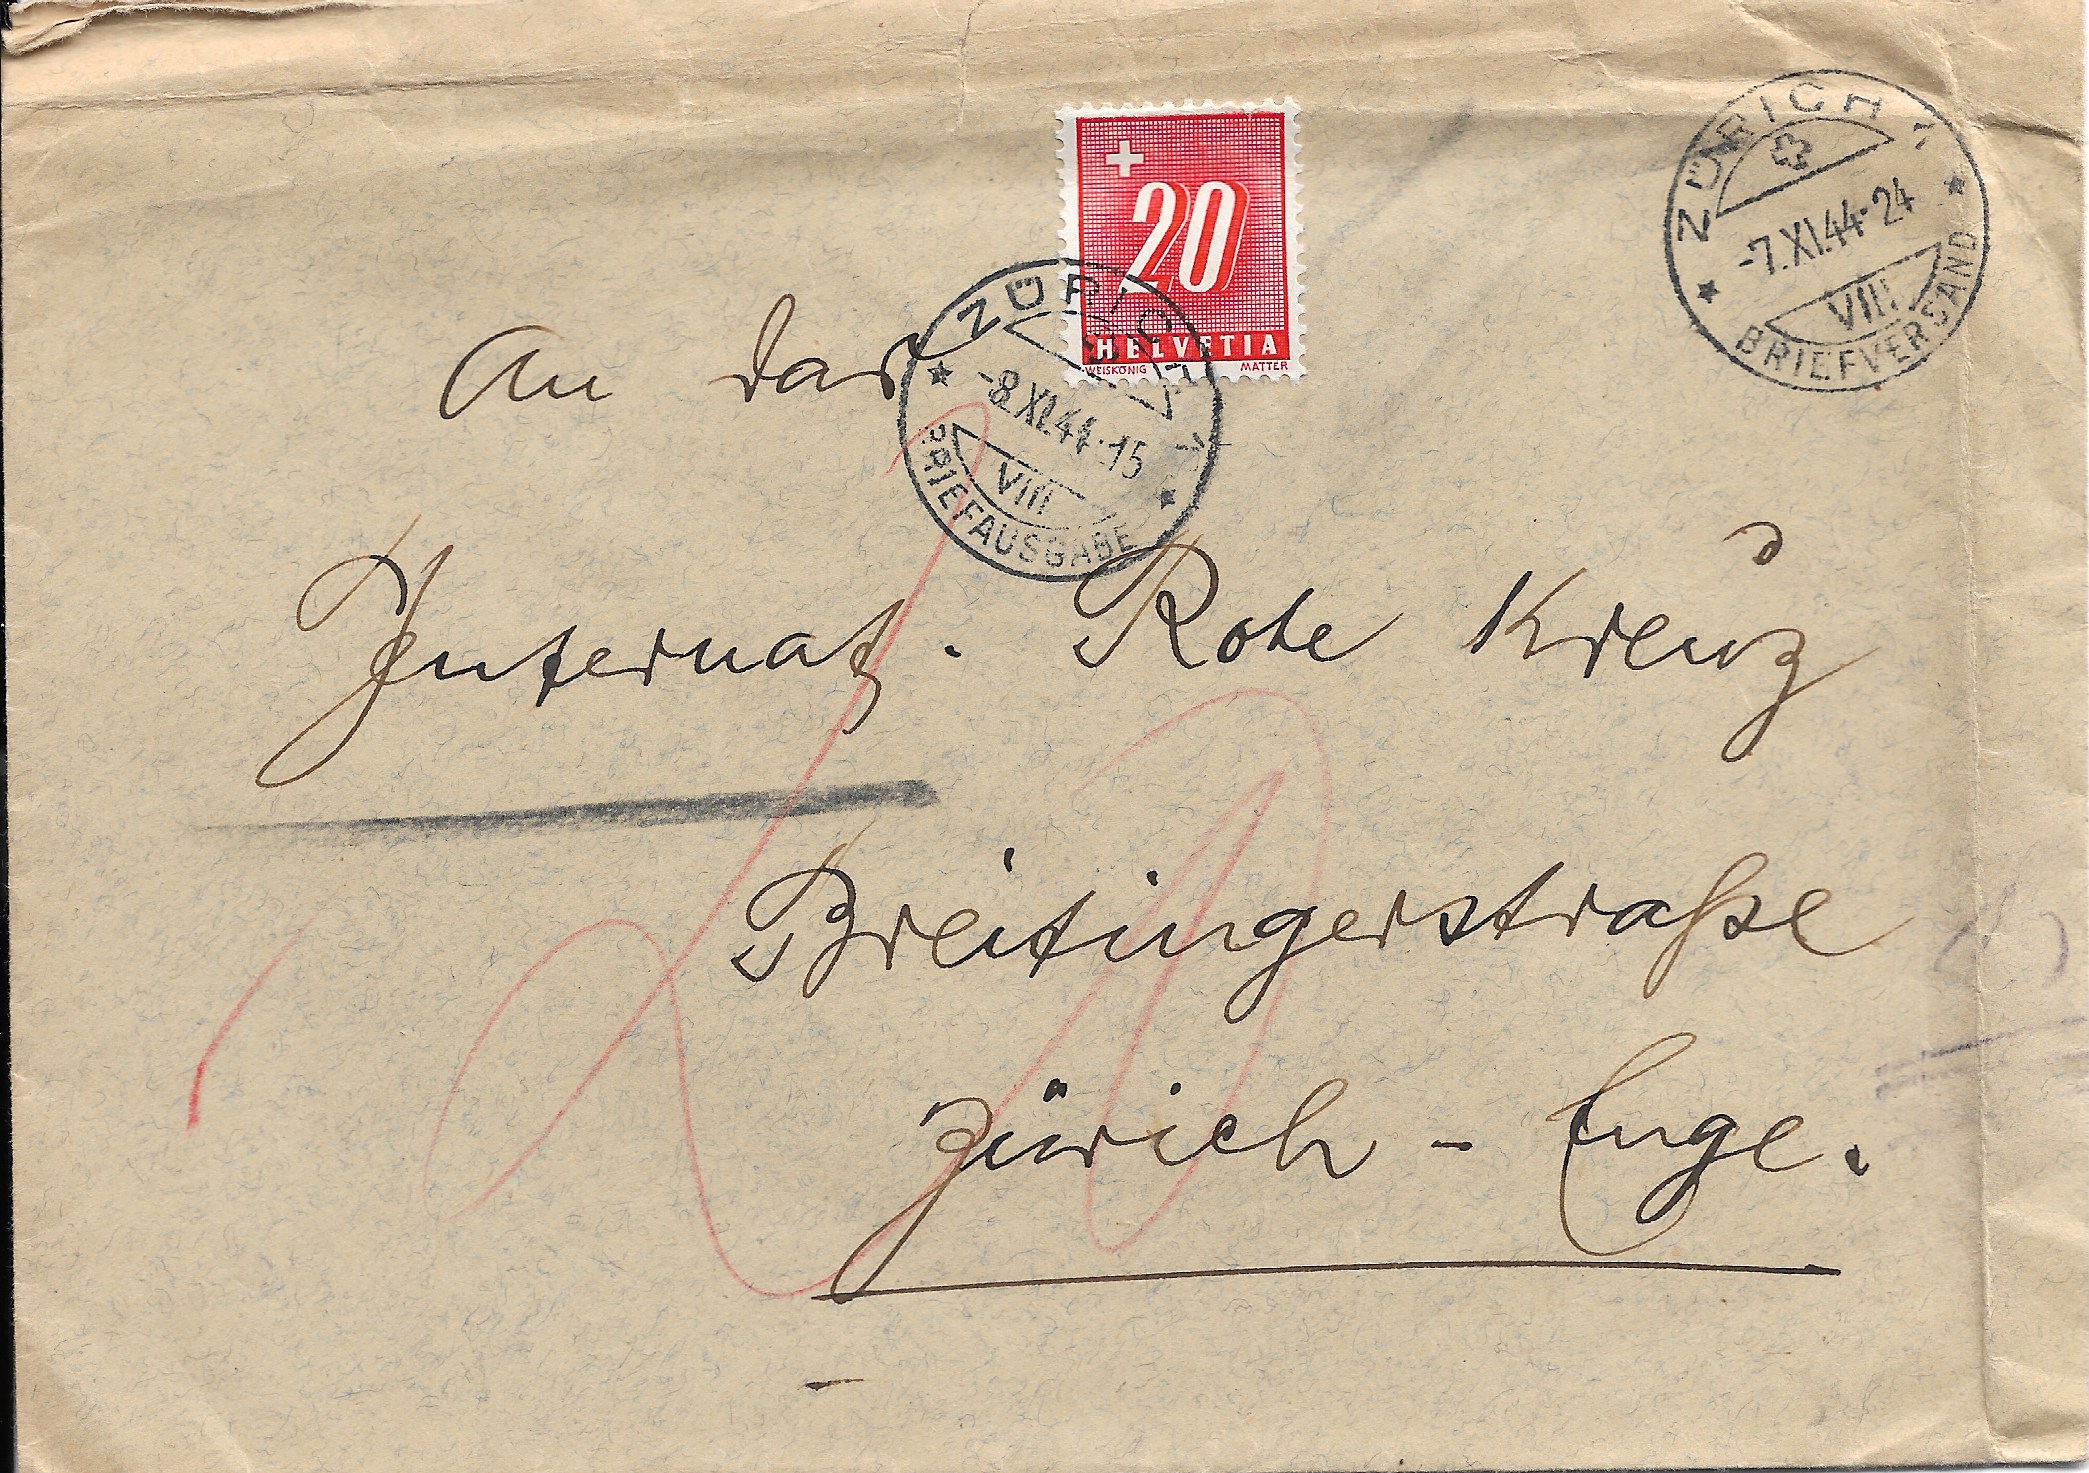 20
HELVETIA
WEISKÖNIG MATTER
ZÜRICH 1
-7.XI.44-24
VIII
BRIEFVERSAND
ZÜRICH 1
-8.XI.44-15
VIII
BRIEFAUSGABE
An das
Internat. Rote Kreuz
Breitingerstraße
Zürich - Enge.